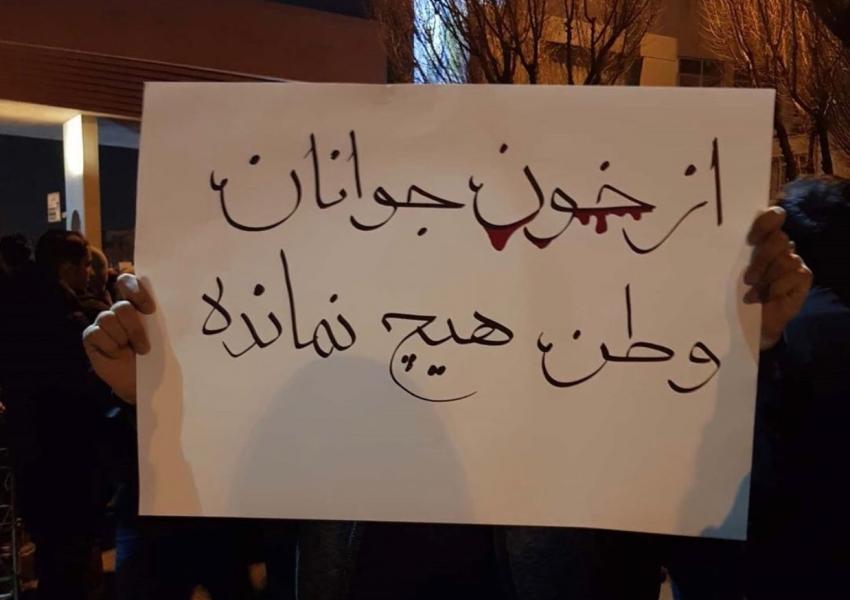 از خون جوانان
وطن هیچ نمانده